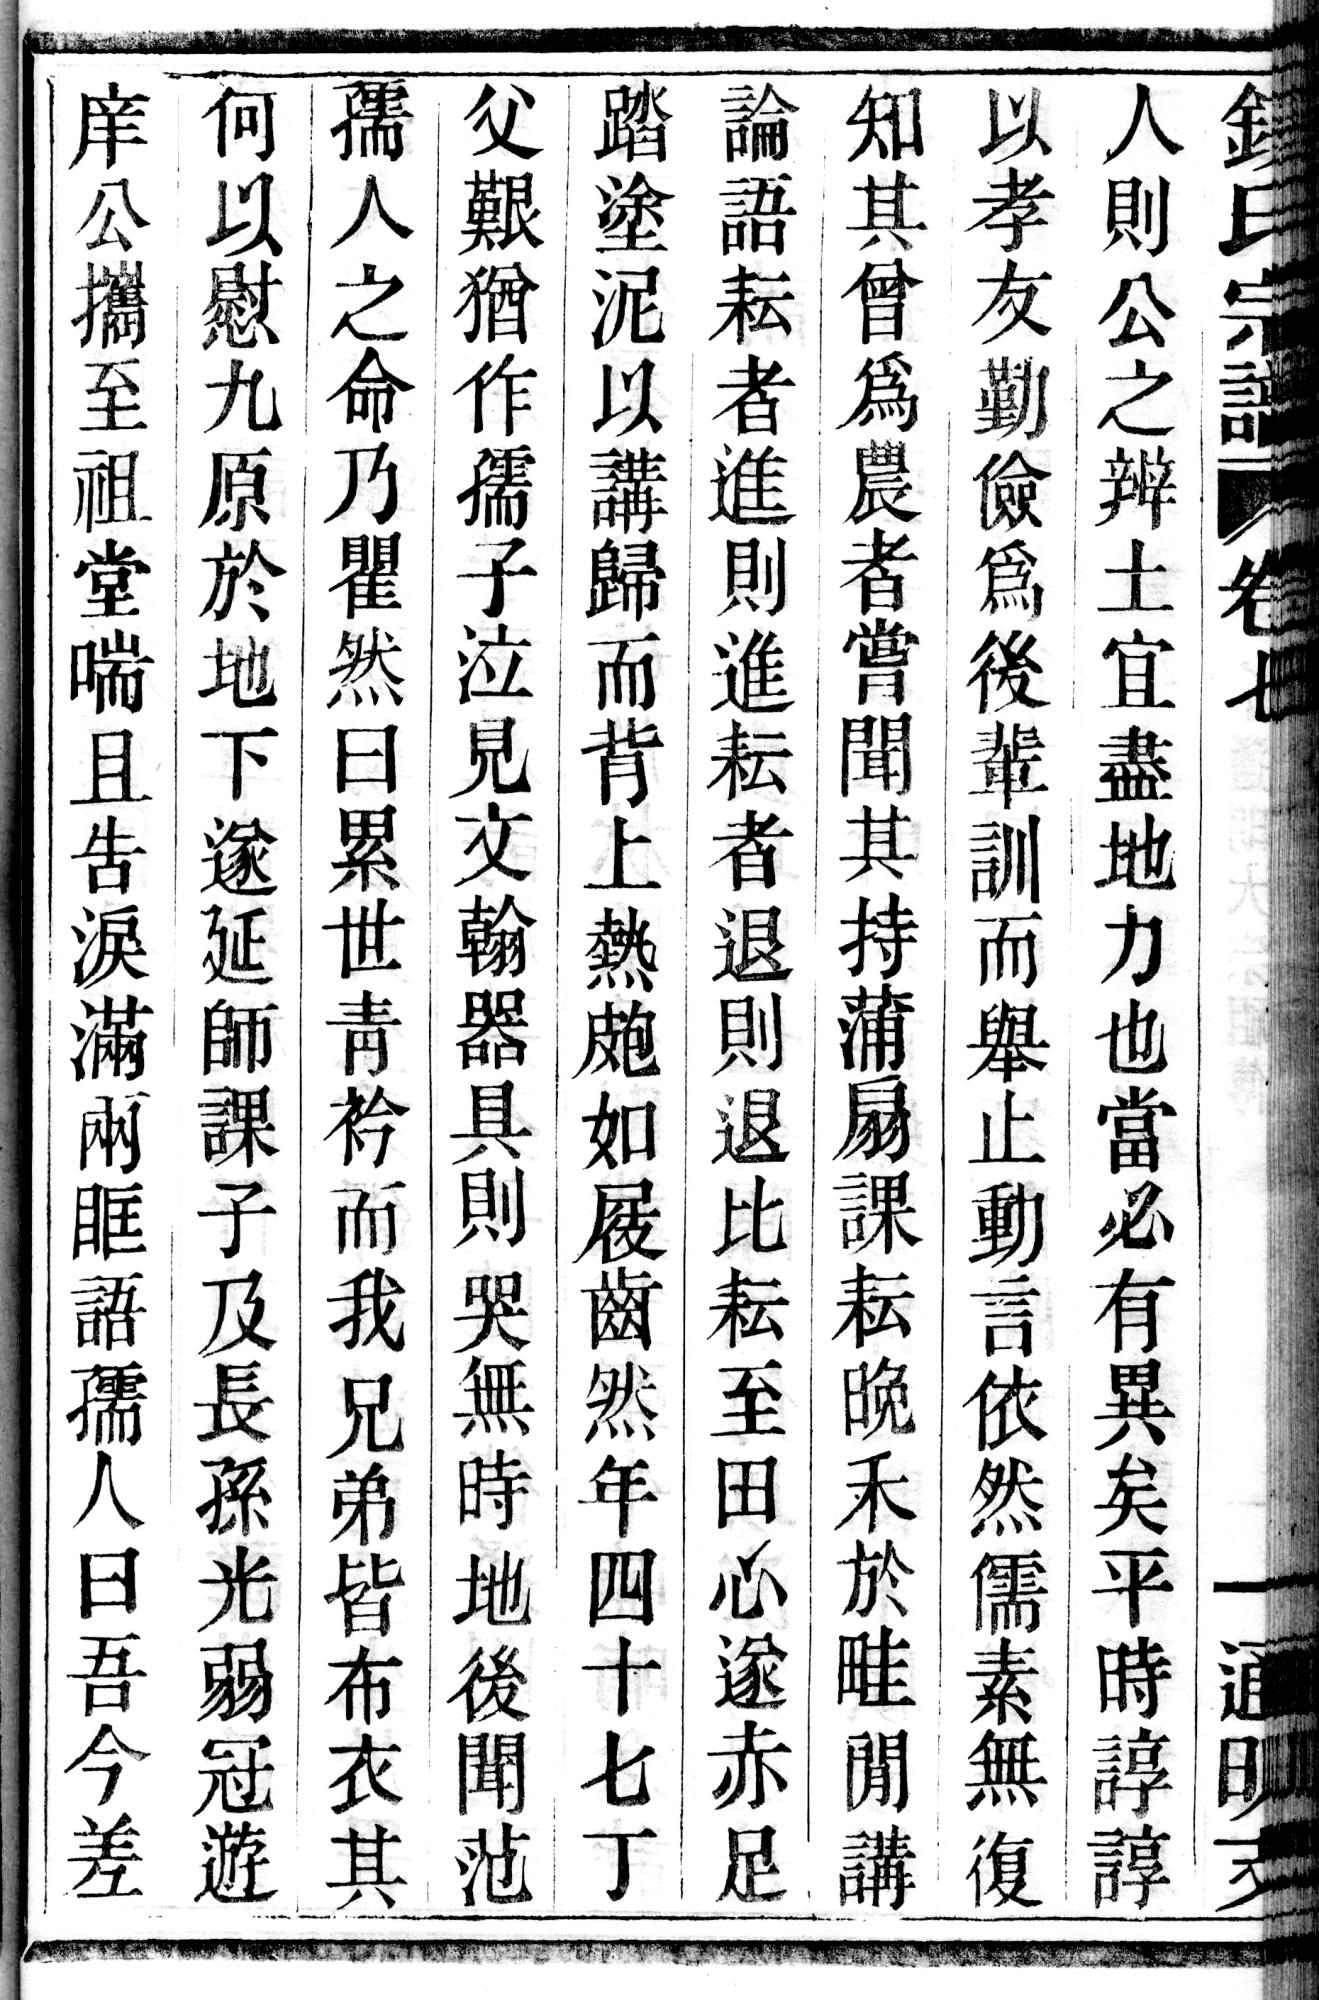 氏宗譜 卷七 一 通明
人則公之辨土宜盡地力也當必有異矣平時諄諄
以孝友勤儉為後輩訓而舉止動言依然儒素無復
知其曾為農者嘗聞其持蒲扇課耘晚禾於畦閒講
論語耘者進則進耘者退則退比耘至田心遂赤足
踏塗泥以講歸而背上熱皰如屐齒然年四十七丁
父艱猶作孺子泣見文翰器具則哭無時地後聞范
孺人之命乃瞿然曰累世青衿而我兄弟皆布衣其
何以慰九原於地下遂延師課子及長孫光弱冠遊
庠公攜至祖堂喘且告淚滿兩眶語孺人曰吾今差